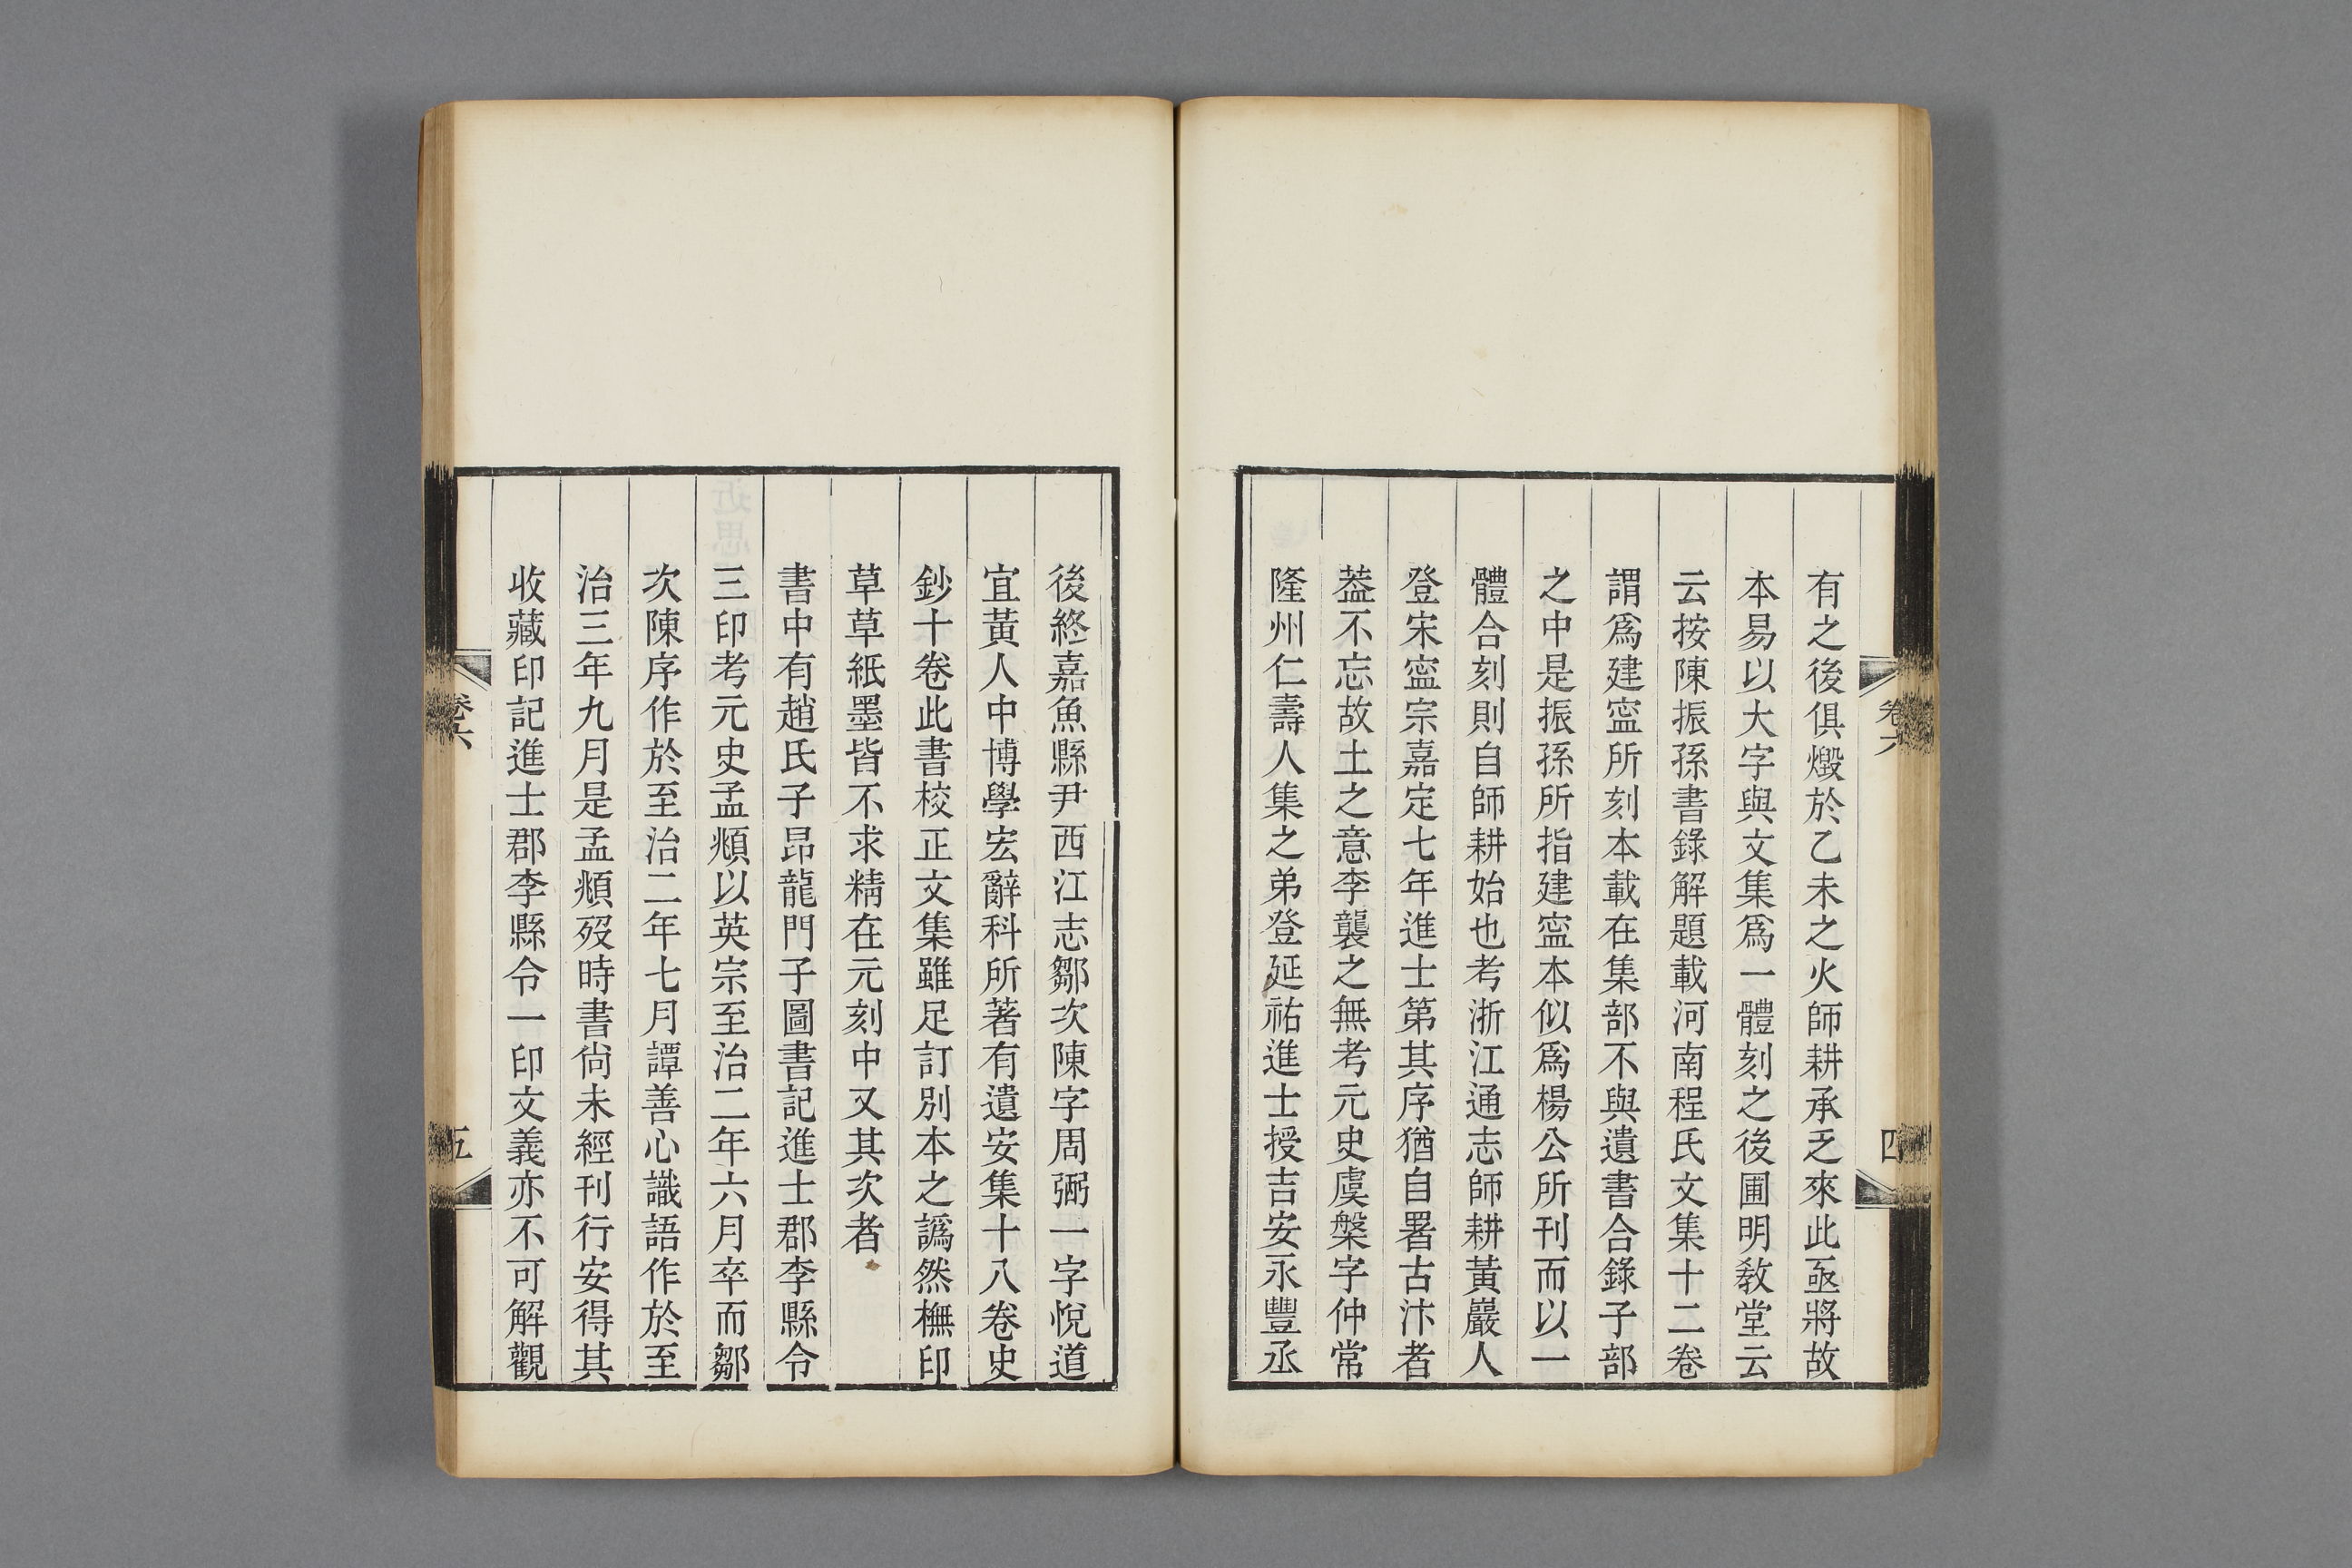 有之後俱燬於乙未之火師耕承乏來此亟將故
本易以大字與文集爲一體刻之後圃明敎堂云
云按陳振孫書錄解題載河南程氏文集十二卷
謂爲建寍所刻本載在集部不與遺書合錄子部
之中是振孫所指建寍本似爲楊公所刊而以一
體合刻則自師耕始也考浙江通志師耕黃巖人
登宋寍宗嘉定七年進士第其序猶自署古汴者
葢不忘故土之意李襲之無考元史虞槃字仲常
隆州仁壽人集之弟登延祐進士授吉安永豐丞
卷六
四
後終嘉魚縣尹西江志鄒次陳字周弼一字悅道
宜黃人中博學宏辭科所著有遺安集十八卷史
鈔十卷此書校正文集雖足訂別本之譌然橅印
草草紙墨皆不求精在元刻中又其次者
書中有趙氏子昂龍門子圖書記進士郡李縣令
三印考元史孟頫以英宗至治二年六月卒而鄒
次陳序作於至治二年七月譚善心識語作於至
治三年九月是孟頫歿時書尙未經刊行安得其
收藏印記進士郡李縣令一印文義亦不可解觀
卷六
五